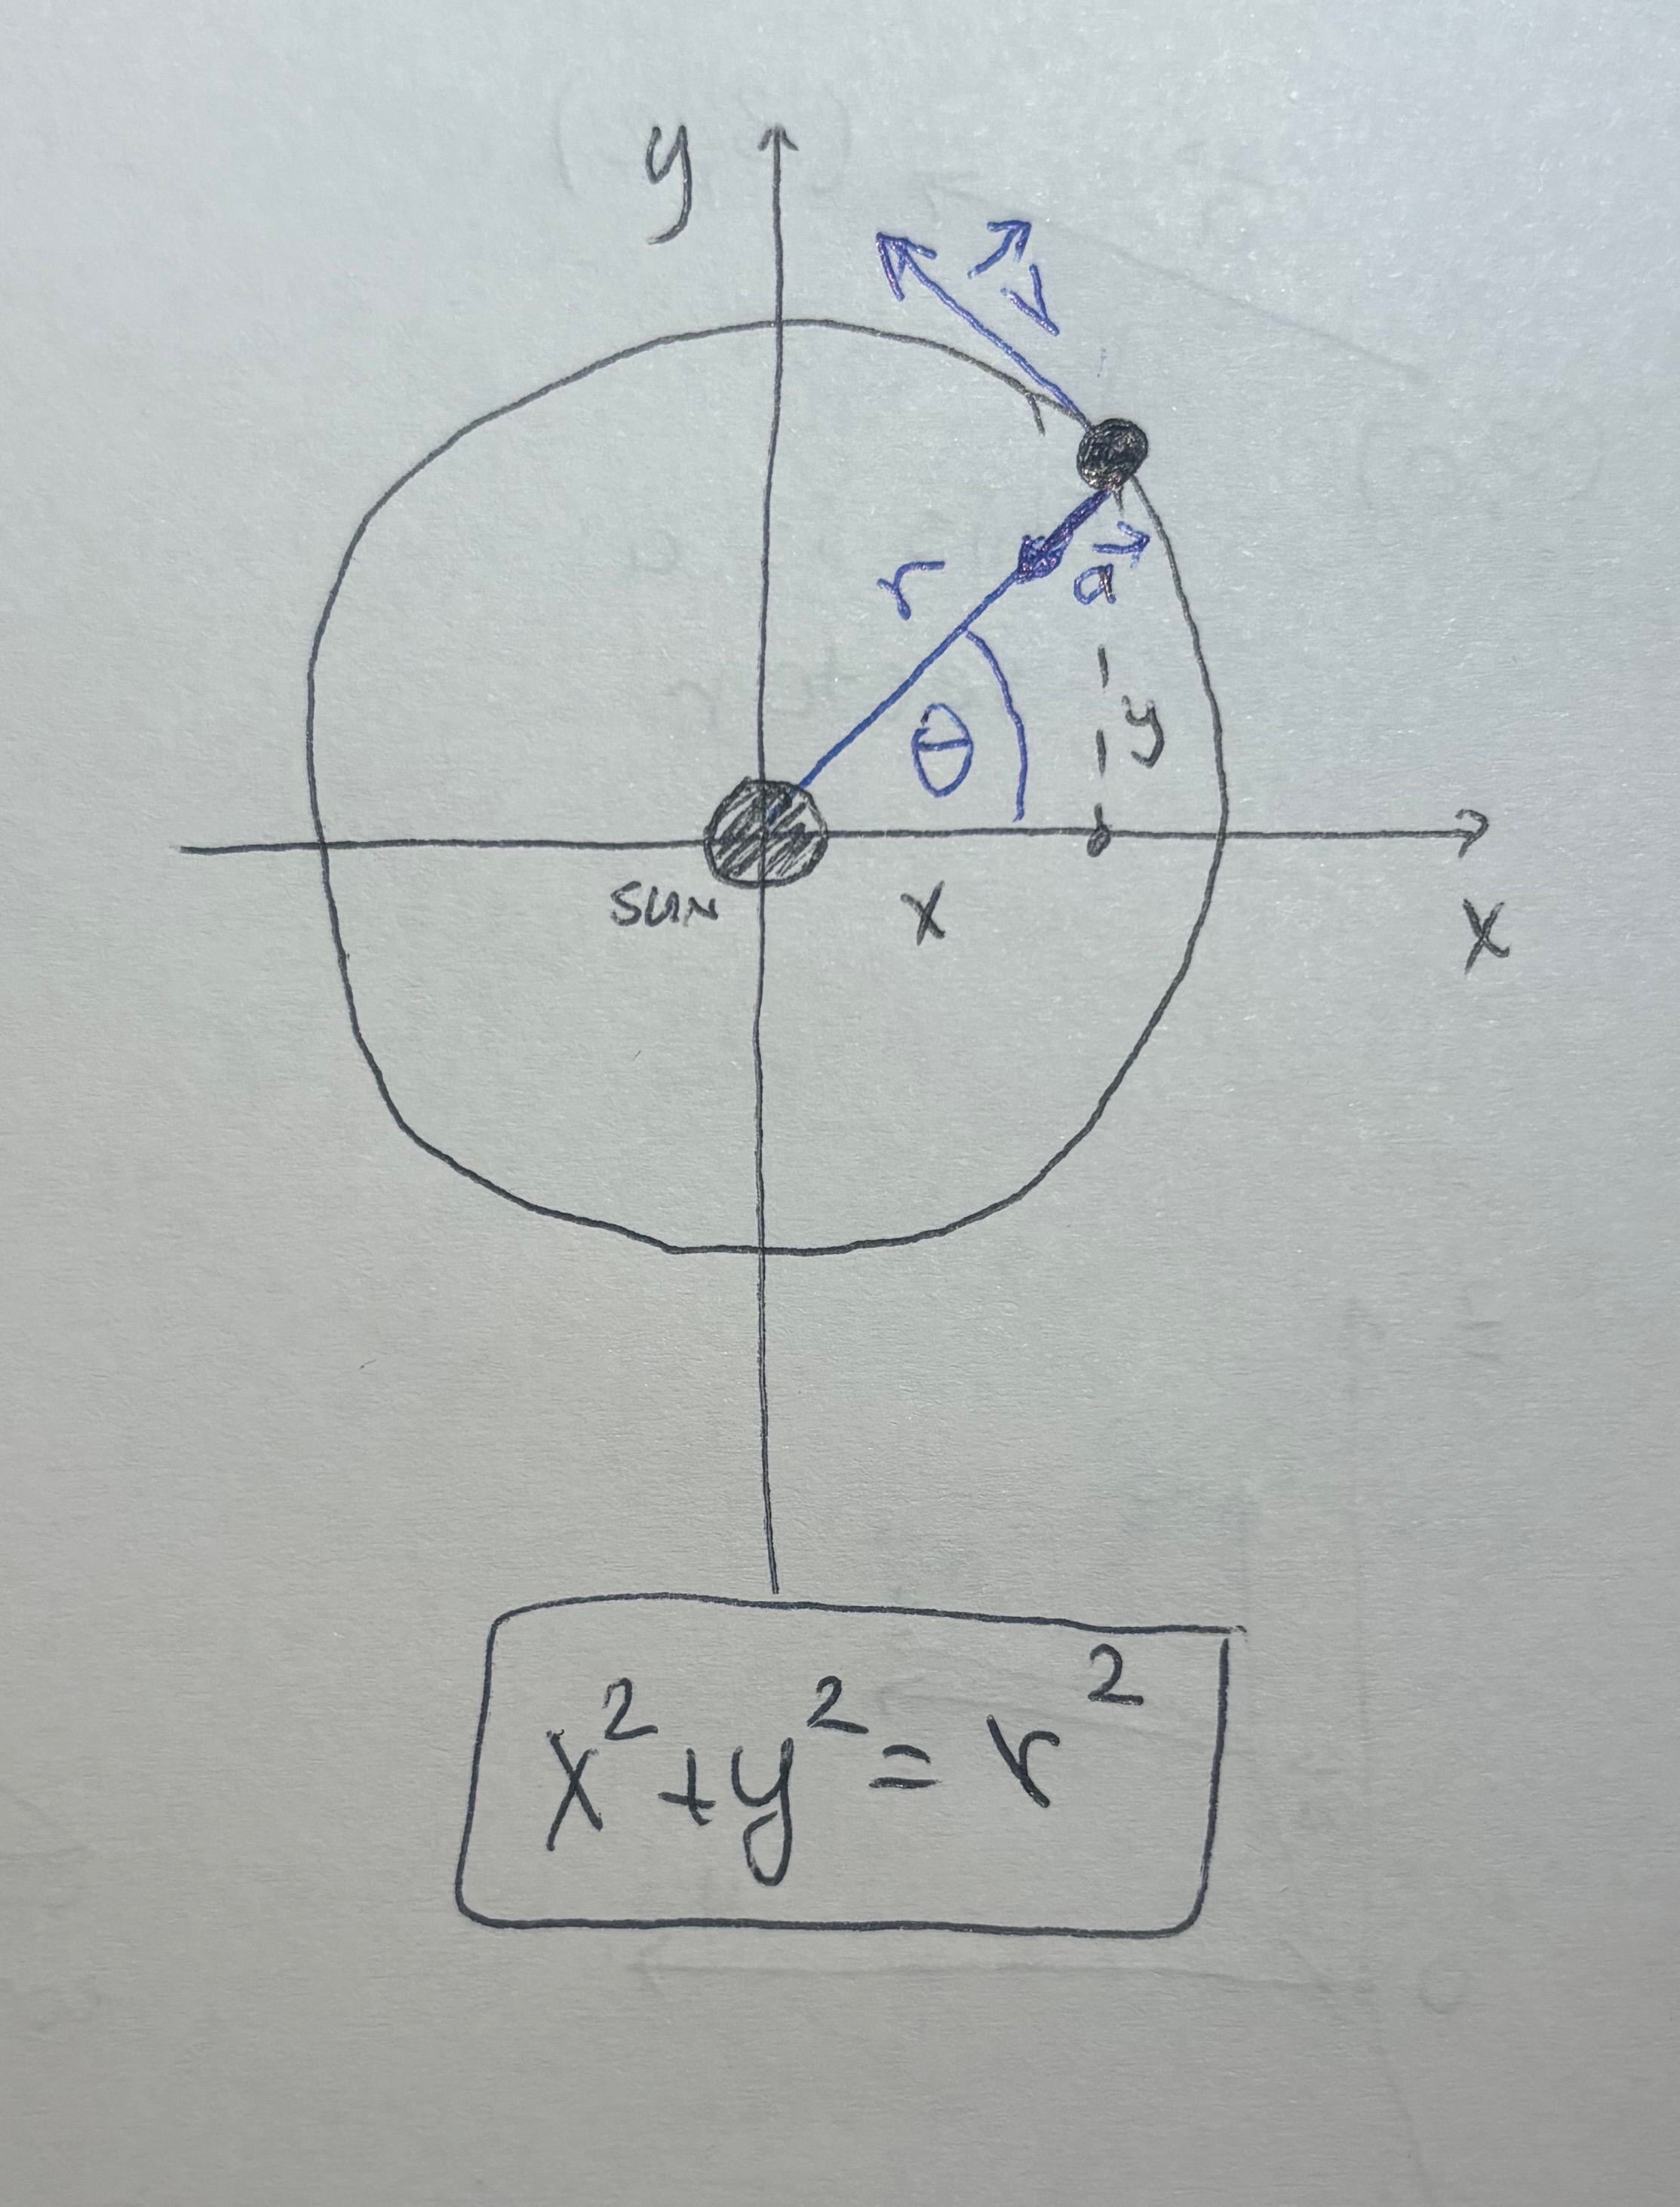 y
v⃗
r
a⃗
θ
y
SUN
x
x
x² + y² = r²